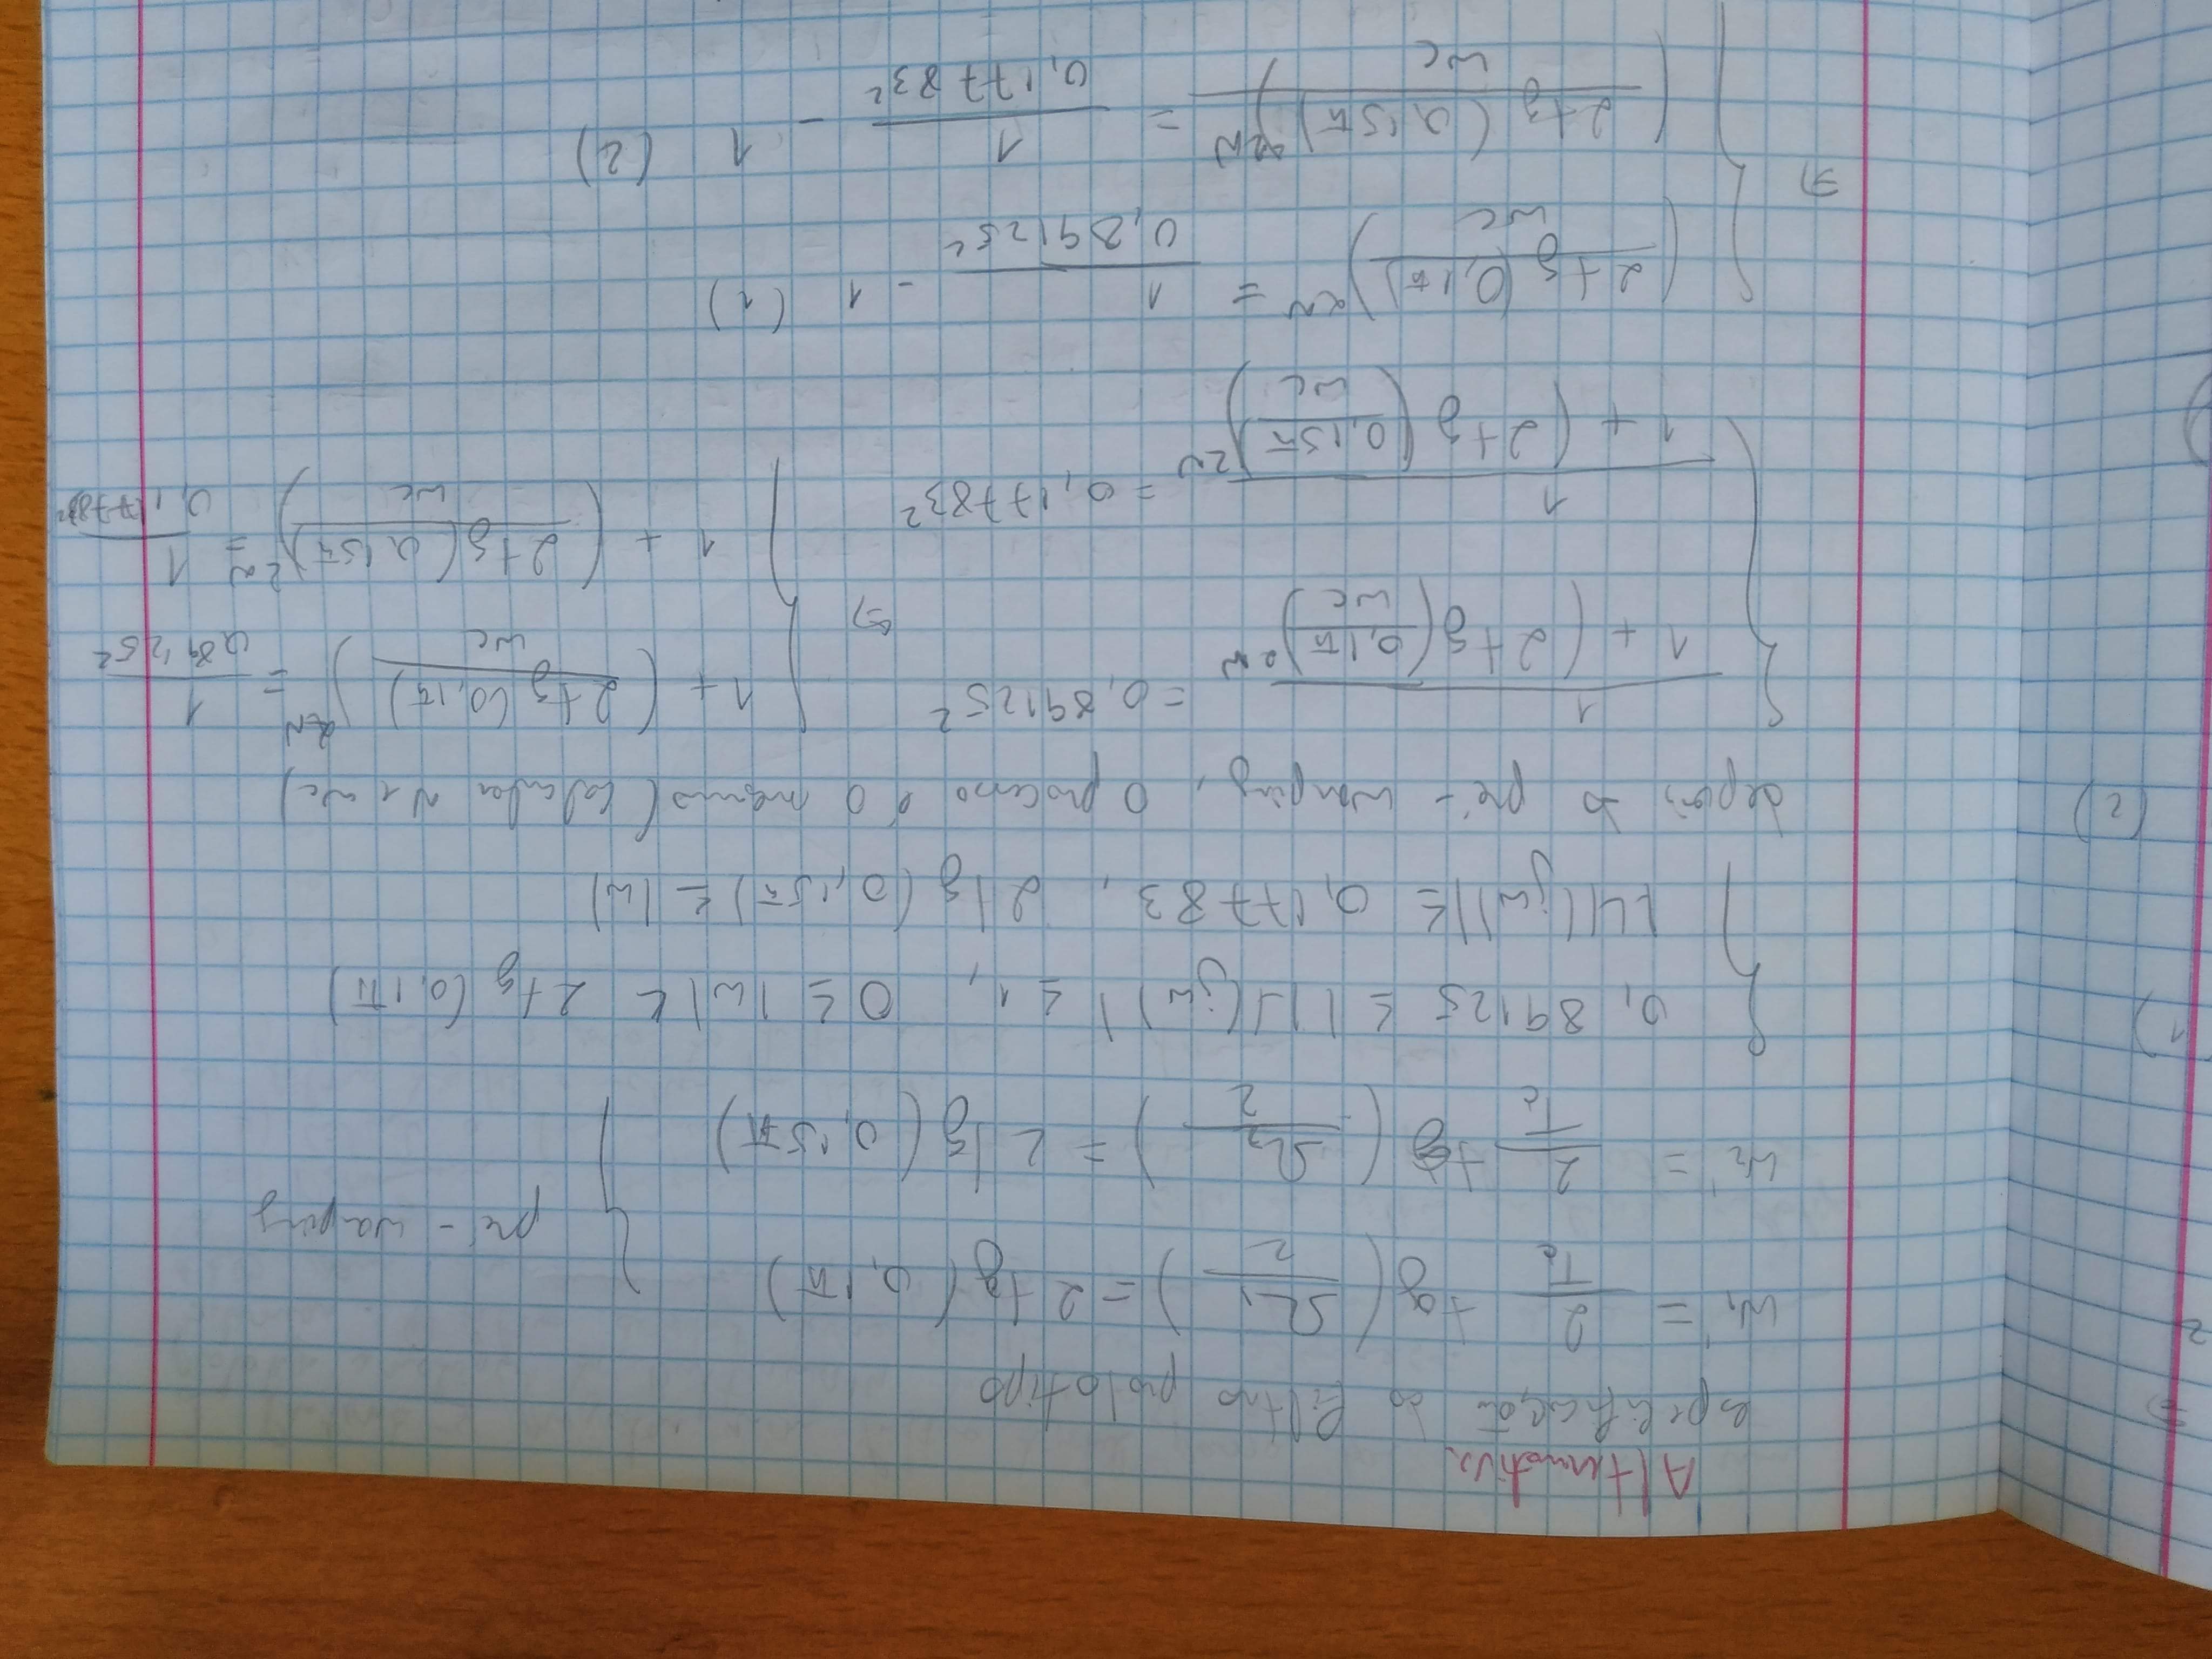 Alternativa
especificação do filtro protótipo
w₁ = 2/Tc tg(Ω₁/2) = 2 tg(0,1π)
w₂ = 2/Tc tg(Ω₂/2) = 2 tg(0,15π) } pré-waping
{ 0,89125 ≤ |H(jw)| ≤ 1, 0 ≤ |w| ≤ 2 tg(0,1π)
|H(jw)| ≤ 0,17783, 2 tg(0,15π) ≤ |w|
depois do pré-warping, o processo é o mesmo (calcular N e wc)
{ 1/(1 + (2 tg(0,1π/wc))^2N) = 0,89125² { 1 + (2 tg(0,1π)/wc)^2N = 1/0,89125²
1/(1 + (2 tg(0,15π/wc))^2N) = 0,17783² ⇔ 1 + (2 tg(0,15π)/wc)^2N = 1/0,17783²
{ (2 tg(0,1π)/wc)^2N = 1/0,89125² - 1 (1)
⇔ (2 tg(0,15π)/wc)^2N = 1/0,17783² - 1 (2)
1)
(2)